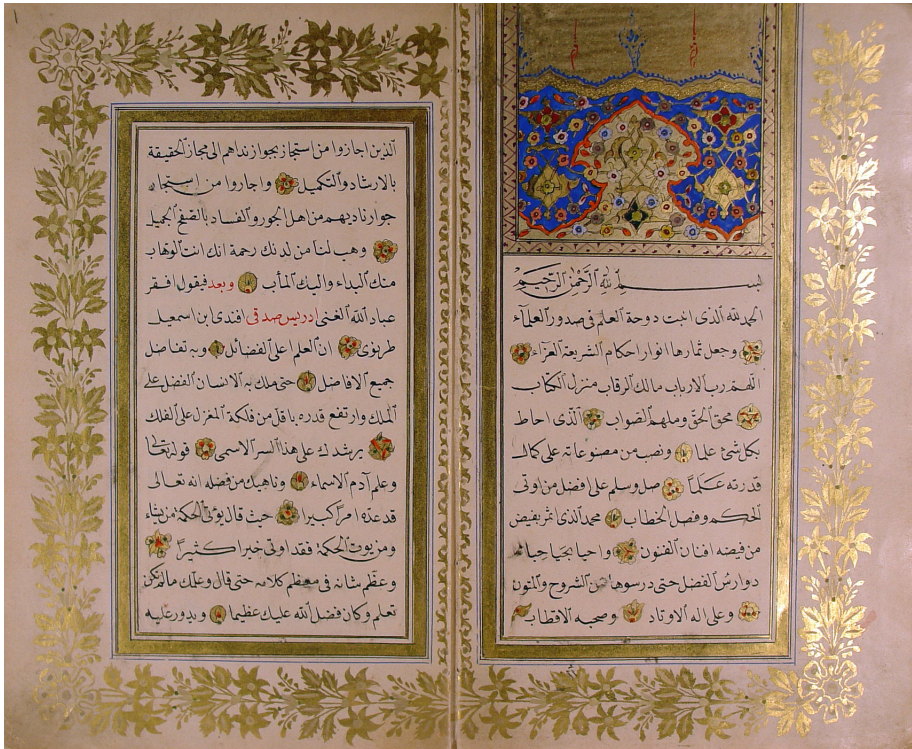 بسم الله الرحمن الرحيم
الحمد لله الذى انبت دوحة العلم فى صدور العلمآء
وجعل ثمارها انوار احكام الشريعة الغرآء
اللهم رب الارباب مالك الرقاب منزل الكتاب
محق الحق وملهم الصواب الذى احاط
بكل شئ علما ونصب من مصنوعاته على كمال
قدرته علما صل وسلم على افضل من اوتى
الحكم وفصل الخطاب محمد الذى اثر بفيض
من فيضه افنان الفنون واحيا بحيا
دوارس الفضل حتى درسوها من الشروح والمتون
وعلى اله الاوتاد وصحبه الاقطاب
الذين اجازوا من استجاز بجواز نداهم الى مجاز الحقيقة
بالارشاد والتكميل واجاروا من استجاه
جوار ناديهم من اهل الجور والفساد بالصفح الجميل
وهب لنا من لدنك رحمة انك انت الوهاب
منك البداء واليك المأب وبعد فيقول افقر
عباد الله الغنى ادريس صدقى افندى ابن اسمعيل
طربوى ان العلم اعلى الفضائل وبه تفاضل
جميع الافاضل حتى ملك به الانسان الفضل على
الملك وارتفع قدره باقل من فلكة المغزل على الفلك
يرشدك على هذا السر الاسمى قوله تعالى
وعلم آدم الاسماء وناهيك من فضله انه تعالى
قد عده امرا كبيرا حيث قال يؤتى الحكمة من يشاء
ومن يوت الحكمة فقد اوتى خيرا كثيرا
وعظم شانه فى معظم كلامه حتى قال وعلمك ما لم تكن
تعلم وكان فضل الله عليك عظيما وبدور عليه